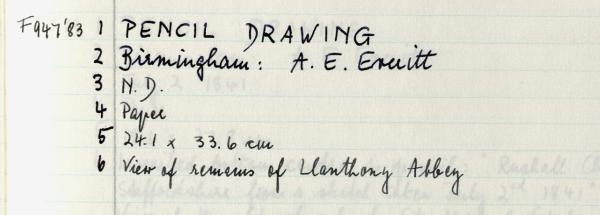 F947'83 1 PENCIL DRAWING
2 Birmingham: A. E. Everitt
3 N.D.
4 Paper
5 24.1 x 33.6 cm
6 View of remains of Llanthony Abbey